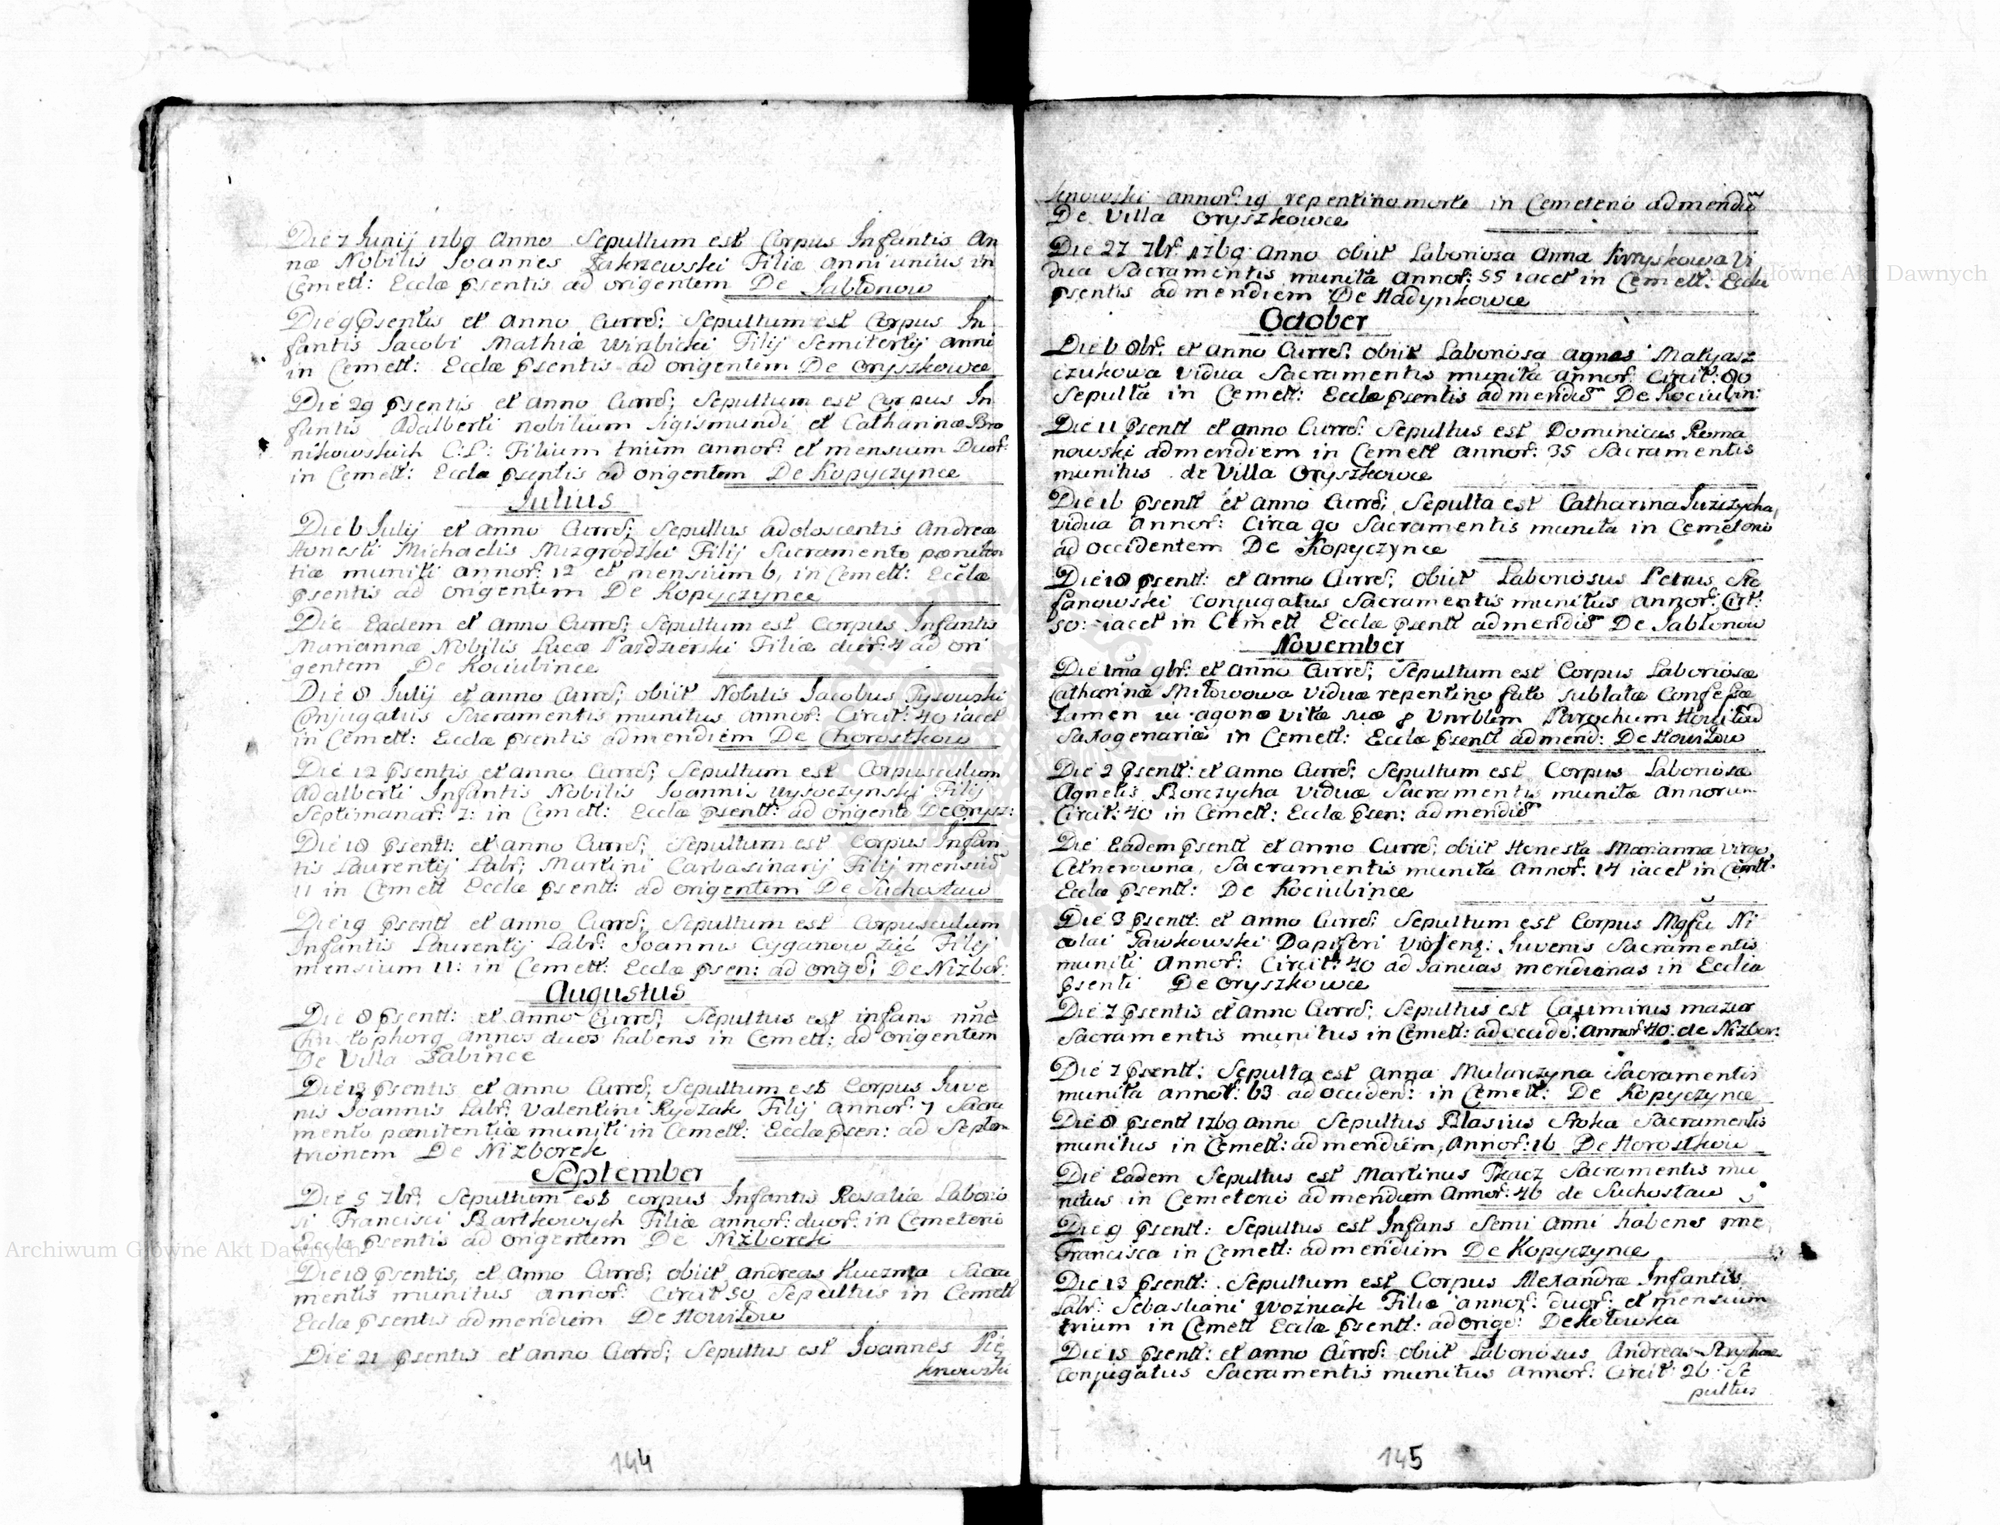 Die 7 Junij 1769 Anno Sepultum est Corpus Infantis An
næ Nobilis Joannes Zakrzewski Filiæ anni unius in
Cemett: Ecclæ psentis ad origentem De Jabłonow
Die 9 psentis et Anno Currē; Sepultum est Corpus In
fantis Jacobi Mathiæ Wirzbicki Filij Semitertij anni
in Cemett: Ecclæ Psentis ad origentem De Oryszkowce
Die 29 psentis et Anno Currē; Sepultum est Corpus In
fantis Adalberti nobilium Sigismundi et Catharinæ Bro
nikowskich C:L: Filium trium annor: et mensium Duor:
in Cemett: Ecclæ psentis ad origentem De Kopyczynce
Julius
Die 6 Julij et Anno Currē; Sepultus adoloscentis Andreæ
Honesti Michaelis Mizgrodzki Filij Sacramento pæniten
tiæ muniti annor: 12 et mensium 6, in Cemett: Ecclæ
psentis ad origentem De Kopyczynce
Die Eadem et Anno Currē; Sepultum est Corpus Infantis
Mariannæ Nobilis Lucæ Pardzierski Filiæ dier: 4 ad ori
gentem De Kociubince
Die 8 Julij et anno Currē; obiit Nobilis Jacobus
Conjugatus Sacramentis munitus annor: Circit: 40 iacet
in Cemett: Ecclæ psentis ad mendiem De Chorostkow
Die 12 psentis et anno Currē; Sepultum est Corpusculum
Adalberti Infantis Nobilis Joannis Wysoczynski Filij
Septimanar: 7: in Cemett: Ecclæ psentt: ad origente De Orysz:
Die 18 psentt: et anno Currē; Sepultum est Corpus Infan
tis Laurentij Labr; Martini Carbasinarij Filij mensiū
11 in Cemett Ecclæ psentt: ad origentem De Suchostaw
Die 19 psentt et Anno Currē; Sepultum est Corpusculum
Infantis Laurentij Labr: Joannis Cyganow Zięć Filij
mensium 11: in Cemett: Ecclæ psen: ad orige; De Nizbor:
Augustus
Die 8 psentt: et anno Currē; Sepultus est infans nnē
Christophorg annos duos habens in Cemett: ad origentem
De Villa Zabince
Die 13 psentis et anno Currē; Sepultum est Corpus Juve
nis Joannis Labr; Valentini Rydzak Filij Annor: 7 Sacra
mento pænitentiæ muniti in Cemett: Ecclæ psen: ad Septen
trionem De Nizborek
September
Die 5 7br; Sepultum est corpus Infantis Rosaliæ Laborio
si Francisci Bartkowych Filiæ annor: duor: in Cemeterio
Ecclæ psentis ad origentem De Nizborek
Die 18 psentis, et Anno Currē; obiit Andreas Kuczma Sacra
mentis munitus annor: Circit 50 Sepultus in Cemett
Ecclæ psentis ad mendiem De Howiłow
Die 21 psentis et anno Currē; Sepultus est Joannes Pię
knowski
144
knowski annor: 19 repentina morte in Cemeterio ad mendiē
De Villa Oryszkowce
Die 27 7br: 1769 Anno obiit Laboriosa Anna Kryskowa Vi
dua Sacramentis munita Annor: 55 iacet in Cemett: Ecclæ
psentis ad mendiem De Hadynkowce
October
Die 6 8br: et Anno Currē: obiit Laboriosa Agnes Matyasz
czukowa vidua Sacramentis munita annor: Circit: 80
Sepulta in Cemett: Ecclæ psentis ad mendiē De Kociubin:
Die 11 Psentt et anno Currē: Sepultus est Dominicus Roma
nowski ad mendiem in Cemett annor: 35 Sacramentis
munitus de Villa Oryszkowce
Die 16 psentt et anno Currē; Sepulta est Catharina
vidua annor: Circa 90 Sacramentis munita in Cemeterio
ad occidentem De Kopyczynce
Die 18 psentt: et Anno Currē; obiit Laboriosus Petrus Ste
fanowski Conjugatus Sacramentis munitus annor: Cirt:
50: iacet in Cemett Ecclæ psentt ad mendiē De Jabłonow
November
Die 1mā 9br: et Anno Currē; Sepultum est Corpus Laboriosæ
Catharinæ Miłowowa viduæ repentino fato sublatæ Confessæ
tamen in agone vitæ suæ p Vnrblem Parochum
Saxogenariæ in Cemett: Ecclæ Psentt ad mend: De Howiłow
Die 2 psentt: et Anno Currē; Sepultum est Corpus Laboriosæ
Agnetis Borczycha Viduæ Sacramentis munitæ Annorum
Circit: 40 in Cemett: Ecclæ psen: ad mendiē
Die Eadem psentt et Anno Currē; obiit Honesta Marianna Virgo
Cetnerowna, Sacramentis munita Annor: 14 iacet in Cemtt:
Ecclæ psentt: De Kociubince
Die 3 psentt: et anno Currē: Sepultum est Corpus Mgfci Ni
colai Pawkowski Dapiferi Juvenis Sacramentis
muniti Annor: Circit: 40 ad Januas meridianas in Ecclia
psenti De Oryszkowce
Die 7 psentis et Anno Currē; Sepultus est Casimirus mazur
Sacramentis munitus in Cemett: ad occide: annor 40: de Nizbor:
Die 7 psentt: Sepulta est Anna Mularzyna Sacramentis
munita annor: 63 ad occiden: in Cemett: De Kopyczynce
Die 8 psentt 1769 anno Sepultus Blasius Sroka Sacramentis
munitus in Cemett: ad mendiem, Annor: 16 De Horostkow
Die Eadem Sepultus est Martinus Tkacz Sacramentis mu
nitus in Cemeterio ad mendiem Annor: 46 de Suchostaw
Die 9 psentt: Sepultus est Infans Semi Anni habens nne
Francisca in Cemett: ad mendiem De Kopyczynce
Die 13 psentt: Sepultum est Corpus Alexandræ Infantis
Labr: Sebastiani Wozniak Filiæ annor: duor: et mensium
trium in Cemett Ecclæ Psentt: ad orige: De Kotowka
Die 15 psentt: et anno Currē: obiit Laboriosus Andreas
Conjugatus Sacramentis munitus annor: Circit 26 Se
pultus
145
Archiwum Główne Akt Dawnych
Archiwum Główne Akt Dawnych